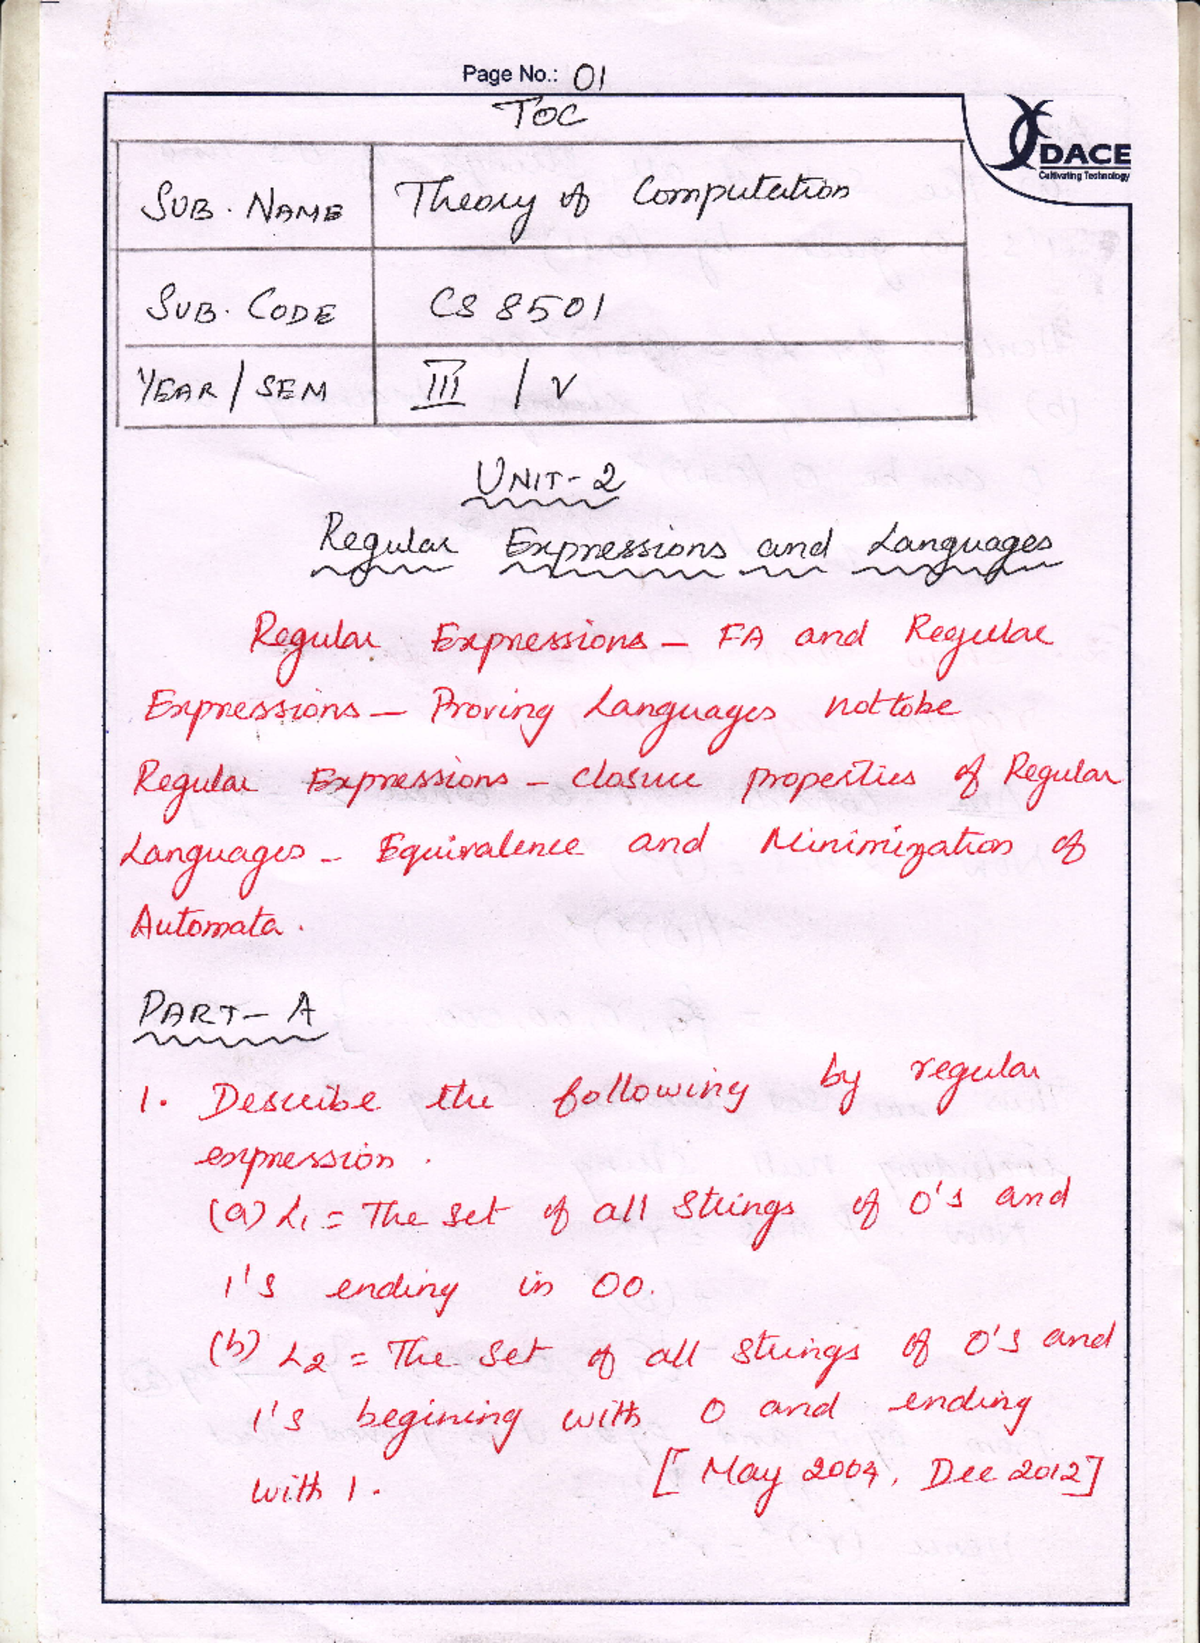 Page No.: 01
TOC
DACE
Cultivating Technology
SUB. NAME Theory of Computation
SUB. CODE CS 8501
YEAR / SEM III / V
UNIT-2
Regular Expressions and Languages
Regular Expressions - FA and Regular
Expressions - Proving Languages not to be
Regular Expressions - Closure properties of Regular
Languages - Equivalence and Minimization of
Automata.
PART-A
1. Describe the following by regular
expression.
(a) L1 = The set of all strings of 0's and
1's ending in 00.
(b) L2 = The set of all strings of 0's and
1's begining with 0 and ending
with 1. [May 2004, Dec 2012]